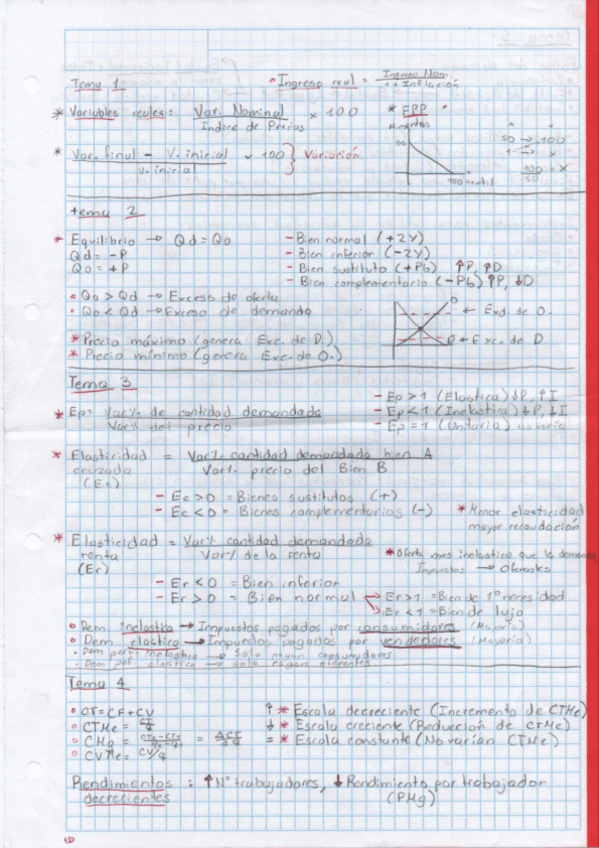 Tema 1:
• Ingreso real = Ingreso Nom / Inflación
* Variables reales: Var. Nominal / Indice de Precios × 100
* FPP
Alimentos
50
100 textil
50 → 100
1 → x
100/50 = x
* Var. final - V. inicial / V. inicial × 100 } Variación
tema 2
* Equilibrio → Qd = Qo
Qd = -P
Qo = +P
- Bien normal (+2Y)
- Bien inferior (-2Y)
- Bien sustituto (+Pb) ↑P, ↑D
- Bien complementario (-Pb) ↑P, ↓D
• Qo > Qd → Exceso de oferta
• Qo < Qd → Exceso de demanda
* Precio máximo (genera Exc. de D.)
* Precio mínimo (genera Exc. de O.)
O
← Exd. de O.
D ← Exc. de D.
Tema 3
* Ep = Var% de cantidad demandada / Var% del precio
- Ep > 1 (Elastica) ↓P, ↑I
- Ep < 1 (Inelastica) ↓P, ↓I
- Ep = 1 (Unitaria) No varía
* Elasticidad cruzada (Ec) = Var% cantidad demandada bien A / Var% precio del Bien B
- Ec > 0 = Bienes sustitutos (+)
- Ec < 0 = Bienes complementarios (-)
* Menor elasticidad
mayor recaudación
* Elasticidad renta (Er) = Var% cantidad demandada / Var% de la renta
* Oferta mas inelastica que la demanda
Impuestos → Oferentes
- Er < 0 = Bien inferior
- Er > 0 = Bien normal
→ Er > 1 = Bien de 1º necesidad
→ Er < 1 = Bien de lujo
• Dem inelastica → Impuestos pagados por consumidores (Mayoría)
• Dem elastica → Impuestos pagados por vendedores (Mayoría)
• Dem perf. inelastica → Solo pagan consumidores
• Dem perf. elastica → solo pagan oferentes
Tema 4
• CT = CF + CV
• CTMe = CT/q
• CMg = = ΔCT/Δq
• CVMe = CV/q
↑ * Escala decreciente (Incremento de CTMe)
↓ * Escala creciente (Reducción de CTMe)
= * Escala constante (No varían CTMe)
Rendimientos decrecientes : ↑ Nº trabajadores, ↓ Rendimiento por trabajador
(PMg)